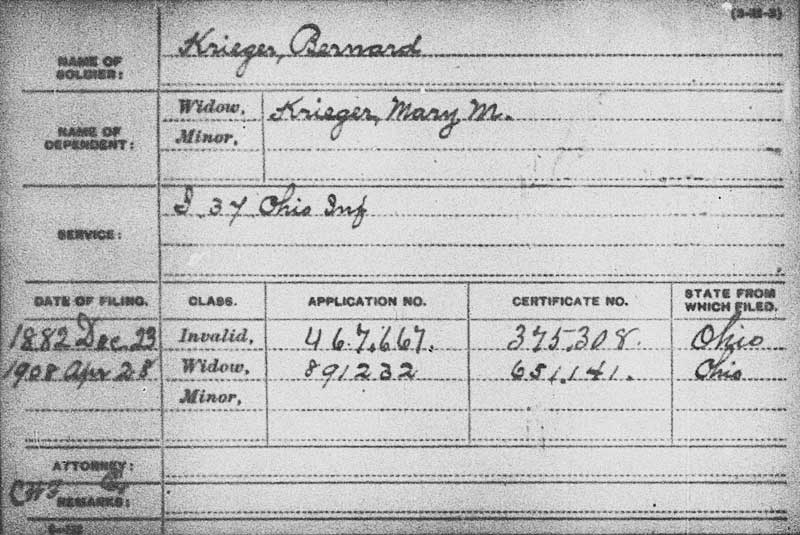 (3-
NAME OF SOLDIER: Krieger, Bernard
NAME OF DEPENDENT: Widow, Krieger, Mary M.
Minor,
SERVICE: I 37 Ohio Inf
DATE OF FILING. CLASS. APPLICATION NO. CERTIFICATE NO. STATE FROM WHICH FILED.
1882 Dec. 23 Invalid, 467.667. 375.308. Ohio
1908 Apr 28 Widow, 891232 651,141. Ohio
Minor,
ATTORNEY:
REMARKS: